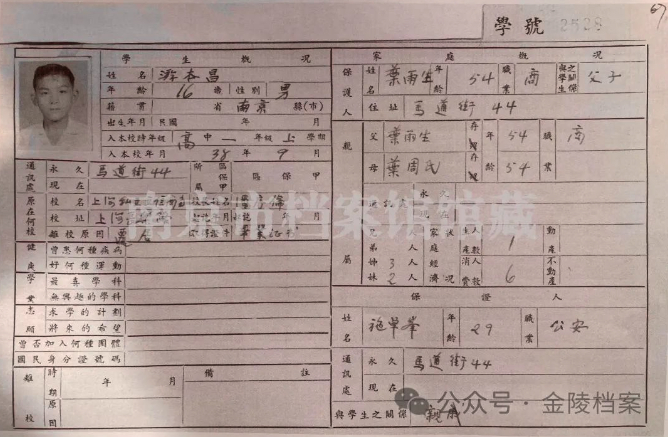 67
學號 2528
學生概況
姓名 游本昌
年齡 16歲 性別 男
籍貫 省 南京 縣(市)
出生年月 民國 年 月
入本校時年級 高中一年級上學期
入本校年月 38年9月
通訊處 永久 馬道街44
現在
所屬區保甲 區保甲
原在何校 校名
校址 上
離校原因
畢業證書
健康 曾患何種疾病
好何種運動
學業 最喜學科
無興趣的學科
志願 求學的計劃
將來的希望
曾否加入何種團體
國民身分證號碼
離校 時期 年 月
原因
備註
家庭概況
保護人 姓名 葉雨生 年齡 54 職業 商 與學生之關係 父子
住址 馬道街44
親屬 父 葉雨生 存歿 年齡 54 職業 商
母 葉周氏 存歿 年齡 54
通訊處 永久
現在
兄弟 人
姊妹 3人
2人
家庭經濟狀況 生產人數 1 動產
消費人數 6 不動產
保證人
姓名 年齡 29 職業 公安
通訊處 永久 馬道街44
現在
與學生之關係 親屬
南京市档案馆馆藏
公众号·金陵档案